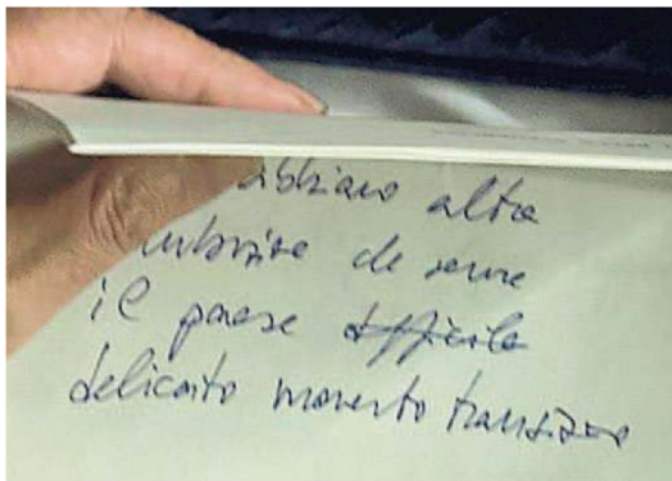 abbiamo altra
ambizione che servire
il paese difficile
delicato momento transizione